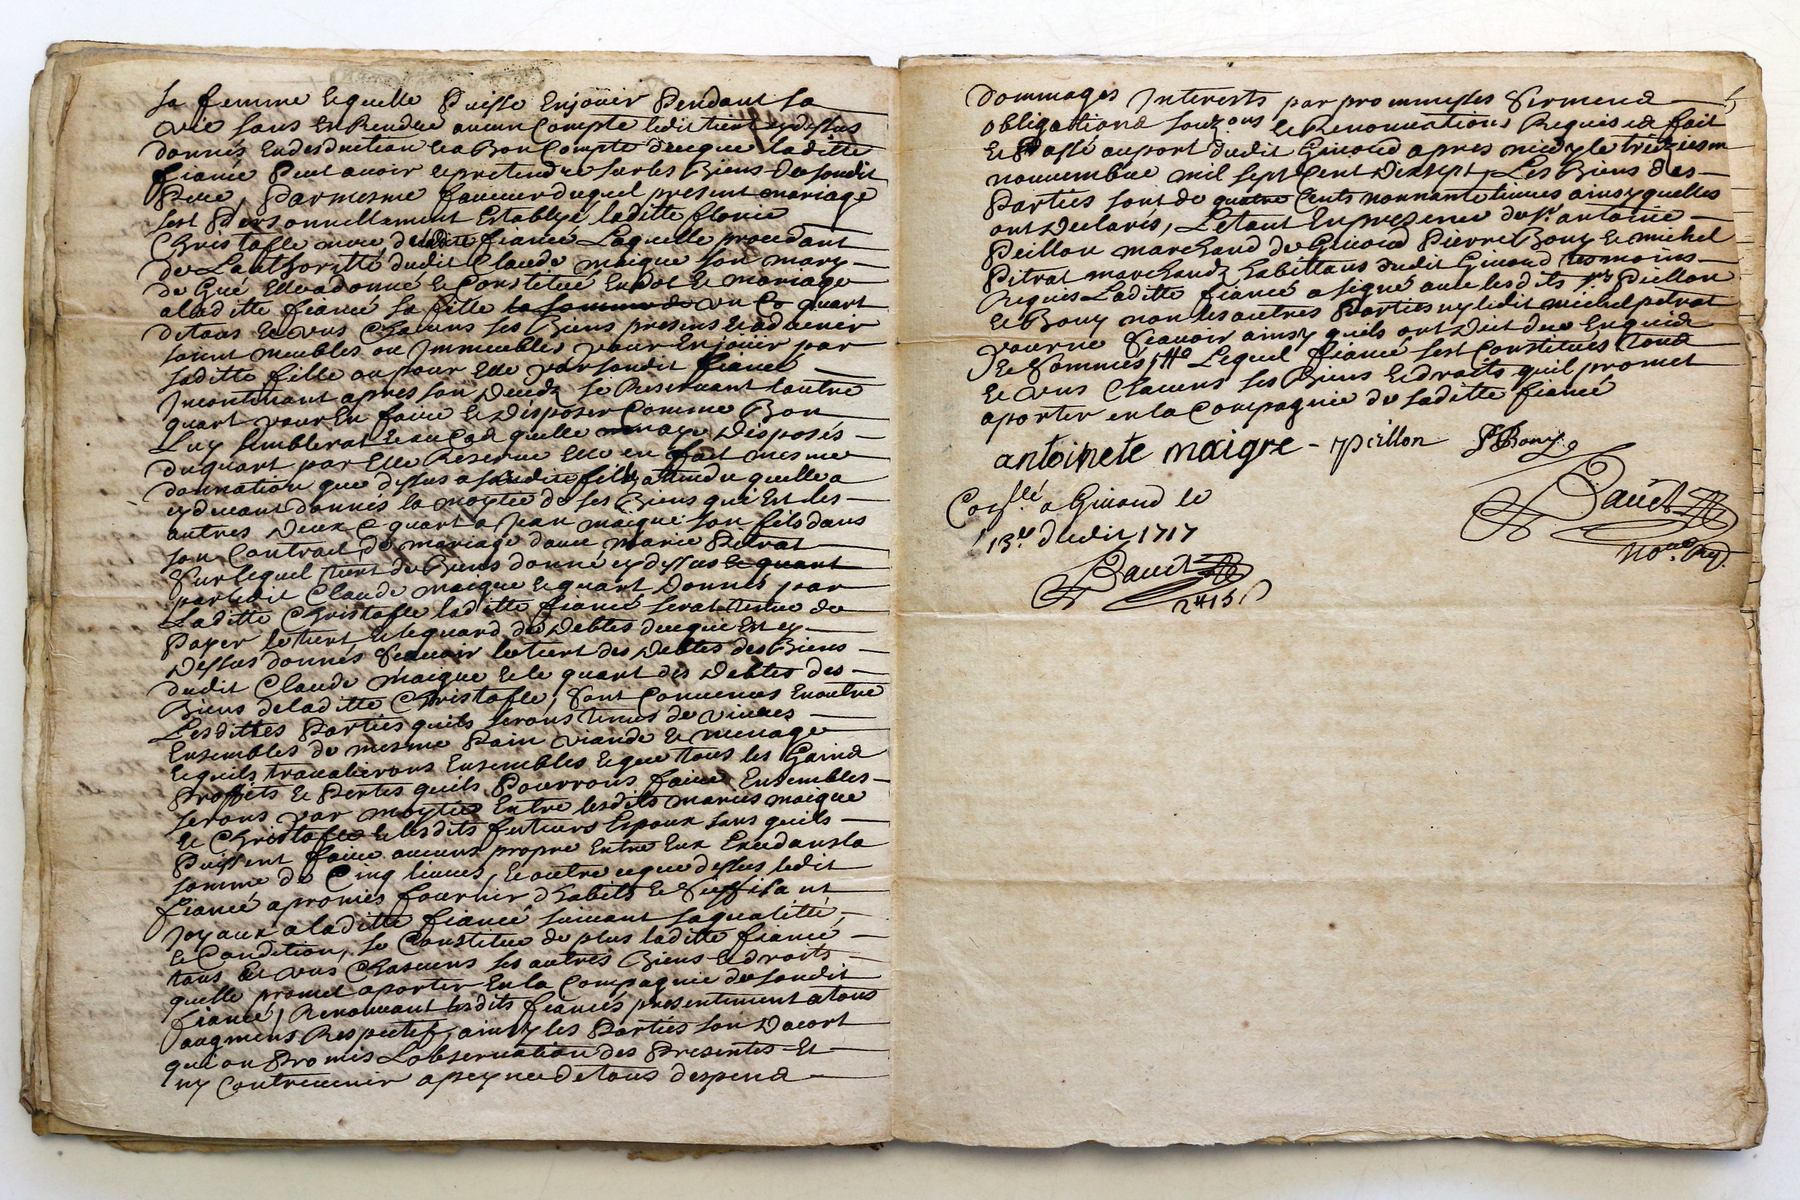 sa femme lequelle Puisse Enjouir Pendant sa
vie sans En Rendre aucun Compte ledit tiert cy dessus
donnés En desduction & a Bon Compte de ce que laditte
fiancé Peut avoir & pretendre sur les Biens de sondit
Pere, Par mesme faueur duquel present mariage
sest Personnellement Establye laditte
Christofle mere de laditte fiancé Laquelle procedant
de Lauthoritté dudit Claude maigre son mary
de Gré Elle a donné & Constitué En dot & mariage
a laditte fiancé sa fille la somme de un quart
de tous & uns Chacuns ses Biens presens & aduenir
soient meubles ou Immeubles pour En jouir par
saditte fille ou pour Elle par sondit fiancé
Incontinant apres son Decedz se Reservant lautre
quart pour En faire & Disposer Comme Bon
Luy semblerat & au Cas quelle naye Disposés
du quart par Elle Reserué Elle en fait mesme
donnation que dessus a saditte fille attendu quelle a
cy deuant donnés la moytié de ses Biens qui Est les
autres Deux quart a Jean maigre son fils dans
son Contrat de mariage dauec marie Pitrat
Sur lequel tiert de Biens donné cy dessus le quart
par ledit Claude maigre & quart Donnés par
Laditte Christofle laditte fiancé serat tenue de
Payer le tiert & le quard des Debtes de ce que Est cy
Dessus donnés Scauoir le tiert des Debtes des Biens
dudit Claude maigre & le quart des Debtes des
Biens de laditte Christofle, Sont Conuenues En outre
Lesdittes Parties quils serons tenus de viures
Ensembles de mesme Pain viande & menage
& quils trauallierons Ensembles & que tous les Gains
Proffits & Pertes quils Pourrons faire Ensembles
serons par moytié Entre lesdits mariés maigre
& Christofle & lesdits futeurs Espoux sans quils
Puissent faire aucuns propre Entre Eux Excedans la
somme de Cinq liures, & outre ce que dessus ledit
fiancé a promis fournir d habits & Suffisant
Joyaux a laditte fiancé suiuant sa qualitté,
& Condition, se Constitue de plus laditte fiancé
tous & uns Chascuns ses autres Biens & droits
quelle promet aporter En la Compagnie de sondit
fiancé, Renonceant lesdits fiancés presentement a tous
augmens Respectif, ainsy les Parties son Dacort
qui on Promis Lobservation des Presentes Et
ny Contreuenir a peyne de tous despens
Dommages Interests par prommesses Serment
obligations & Renonciations Requises fait
& Passé au port dudit Giuord apres midy le treiziesm
nouuembre mil sept Cent Dixsept, Les Biens des
Parties sont de quatre Cents nonnante liures ainsy quelles
ont Declarés, Le tout En presence de Sr. antoine
Peillon marchand de Giuord Pierre Bony & michel
Pitrat marchands habittans dudit Giuord tesmoins
Requis Laditte fiancé a signé auec lesdits Srs Peillon
& Bony non les autres Parties ny ledit michel pitrat
pour ne Scauoir ainsy quils ont Dit de ce Enquis
& Sommés, Lequel fiancé sest Constitués tous
& uns Chacuns ses Biens & droits quil promet
aporter en la Compagnie de saditte fiancé
antoinete maigre - peillon P Bony
Conllé a Giuord le
13e dudit 1717